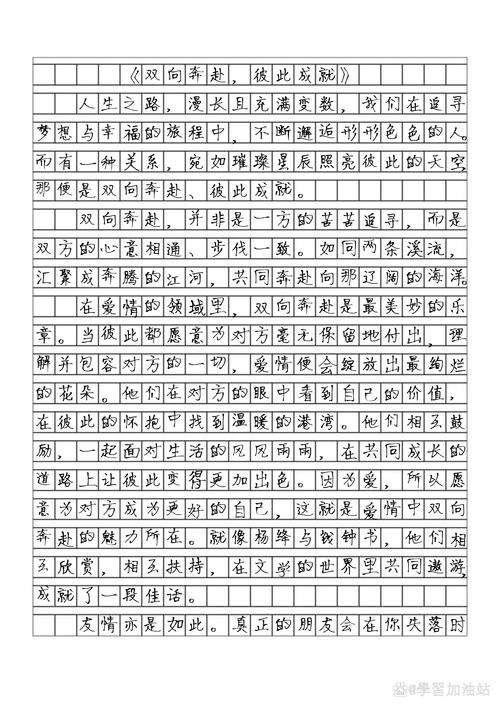 《双向奔赴，彼此成就》
人生之路，漫长且充满变数，我们在追寻
梦想与幸福的旅程中，不断邂逅形形色色的人。
而有一种关系，宛如璀璨星辰照亮彼此的天空，
那便是双向奔赴、彼此成就。
双向奔赴，并非是一方的苦苦追寻，而是
双方的心意相通、步伐一致。如同两条溪流，
汇聚成奔腾的江河，共同奔赴向那辽阔的海洋。
在爱情的领域里，双向奔赴是最美妙的乐
章。当彼此都愿意为对方毫无保留地付出，理
解并包容对方的一切，爱情便会绽放出最绚烂
的花朵。他们在对方的眼中看到自己的价值，
在彼此的怀抱中找到温暖的港湾。他们相互鼓
励，一起面对生活的风风雨雨，在共同成长的
道路上让彼此变得更加出色。因为爱，所以愿
意为对方成为更好的自己，这就是爱情中双向
奔赴的魅力所在。就像杨绛与钱钟书，他们相
互欣赏，相互扶持，在文学的世界里共同遨游，
成就了一段佳话。
友情亦是如此。真正的朋友会在你失落时
@學習加油站